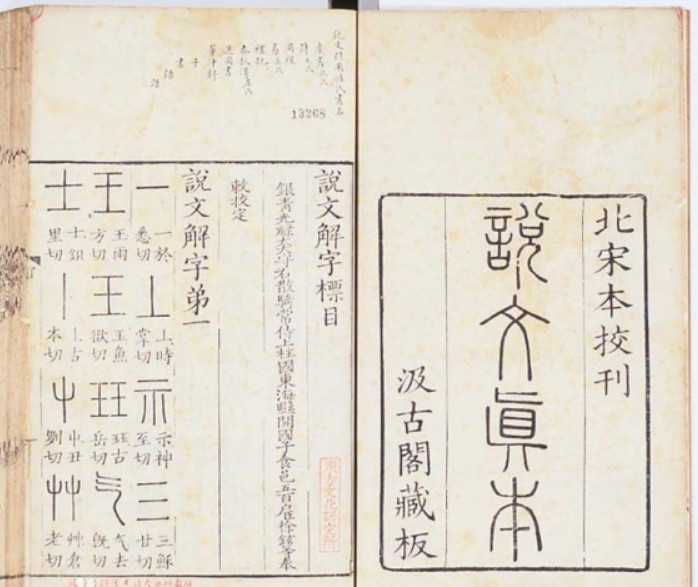 北宋本挍刊
說文眞本
汲古閣藏板
13268
說文解字標目
銀青光祿大夫守右散騎常侍上柱國東海縣開國子食邑五百戶臣徐鉉等奉
敕挍定
說文解字弟一
一 一於悉切 丄 上時掌切 示 示神至切 三 三穌甘切
王 王雨方切 玉 玉魚欲切 玨 玨古岳切 气 气去旣切
士 士鉏里切 丨 丨古本切 屮 屮丑劉切 艸 艸倉老切